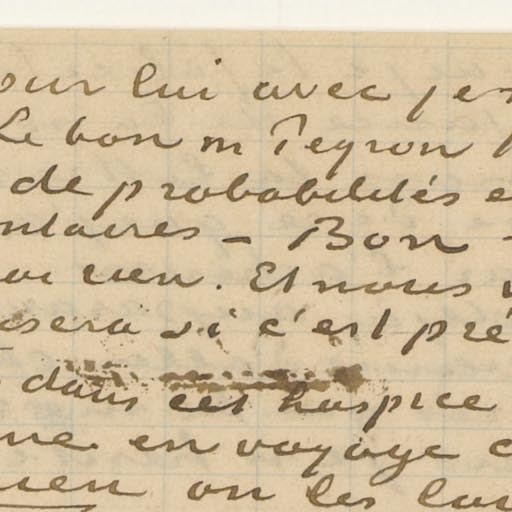 our lui avec
Le bon m Peyron
de probabilités
ntaires – Bon –
rien. Et nous
sera si c'est pré
dans cet hospice
en voyage
on les